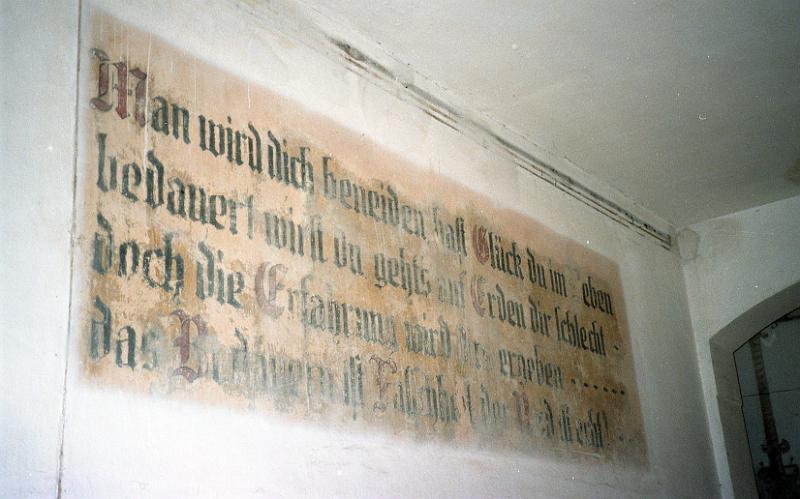 Man wird dich beneiden hast Glück du im Leben
bedauert wirst du gehts auf Erden dir schlecht -
doch die Erfahrung wird dir's ergeben ......
das Bedauern ist Falschheit der Neid ist echt! ..